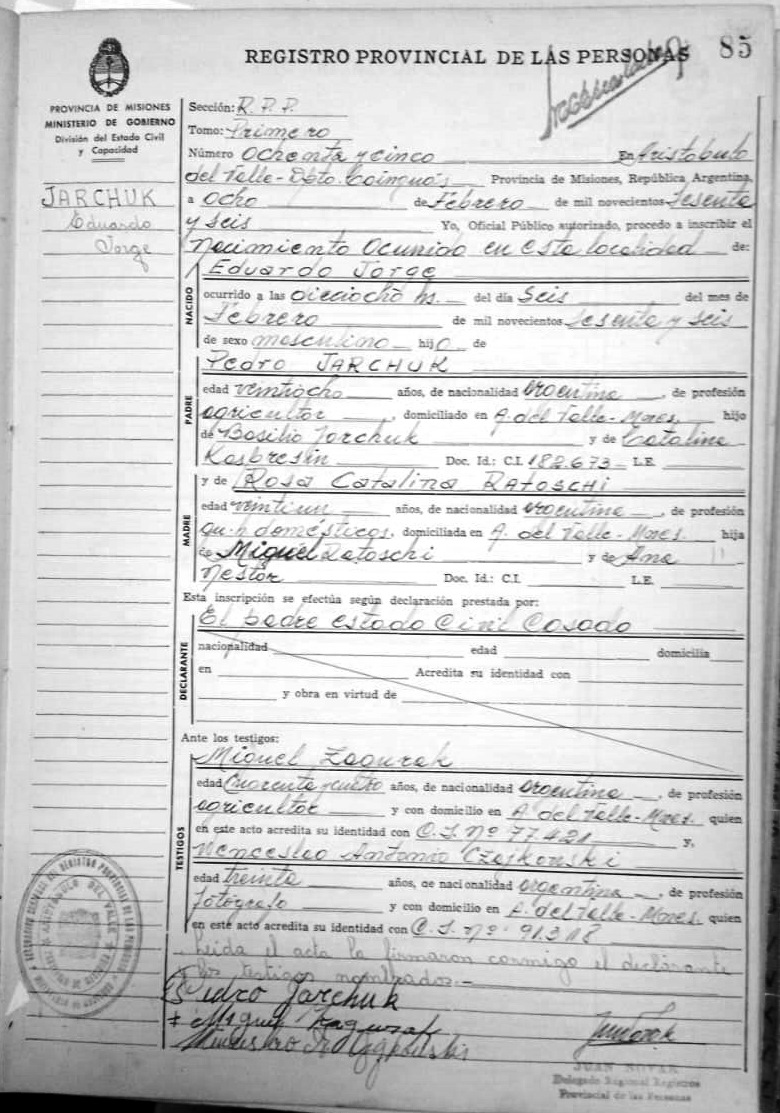 85
REGISTRO PROVINCIAL DE LAS PERSONAS
PROVINCIA DE MISIONES
MINISTERIO DE GOBIERNO
División del Estado Civil
y Capacidad
JARCHUK
Eduardo
Jorge
Sección: R. P. P.
Tomo: Primero
Número Ochenta y cinco En Aristobulo
del Valle - Dpto. Cainguás Provincia de Misiones, República Argentina,
a Ocho de Febrero de mil novecientos Sesenta
y seis Yo, Oficial Público autorizado, procedo a inscribir el
Nacimiento Ocurrido en esta localidad de:
NACIDO
Eduardo Jorge
ocurrido a las dieciocho hs. del día Seis del mes de
Febrero de mil novecientos Sesenta y seis
de sexo masculino hijo de
PADRE
Pedro JARCHUK
edad veintiocho años, de nacionalidad argentina, de profesión
agricultor, domiciliado en A. del Valle - Mnes. hijo
de Basilio Jarchuk y de Catalina
Doc. Id.: C.I. 182.673 L.E.
MADRE
y de Rosa Catalina RATOSCHI
edad veintiun años, de nacionalidad argentina, de profesión
qu-h domésticos, domiciliada en A. del Valle - Mnes. hija
de Miguel Ratoschi y de Ana
Nestor Doc. Id.: C.I. L.E.
Esta inscripción se efectúa según declaración prestada por:
DECLARANTE
El padre estado Civil Casado
nacionalidad edad domicilia
en Acredita su identidad con
y obra en virtud de
Ante los testigos:
TESTIGOS
Miguel Zagurak
edad Cuarenta y cuatro años, de nacionalidad argentina, de profesión
agricultor y con domicilio en A. del Valle - Mnes. quien
en este acto acredita su identidad con C. I. Nº 77.421 y,
Wenceslao Antonio Czajkowski
edad treinta años, de nacionalidad argentina, de profesión
fotógrafo y con domicilio en A. del Valle - Mnes. quien
en este acto acredita su identidad con C. I. nº 91.318
Leida el acta la firmaron conmigo el declarante
y los testigos nombrados.-
Pedro Jarchuk
Miguel Zagurak
JUAN NOVAK
Delegado Regional Registro
Provincial de las Personas